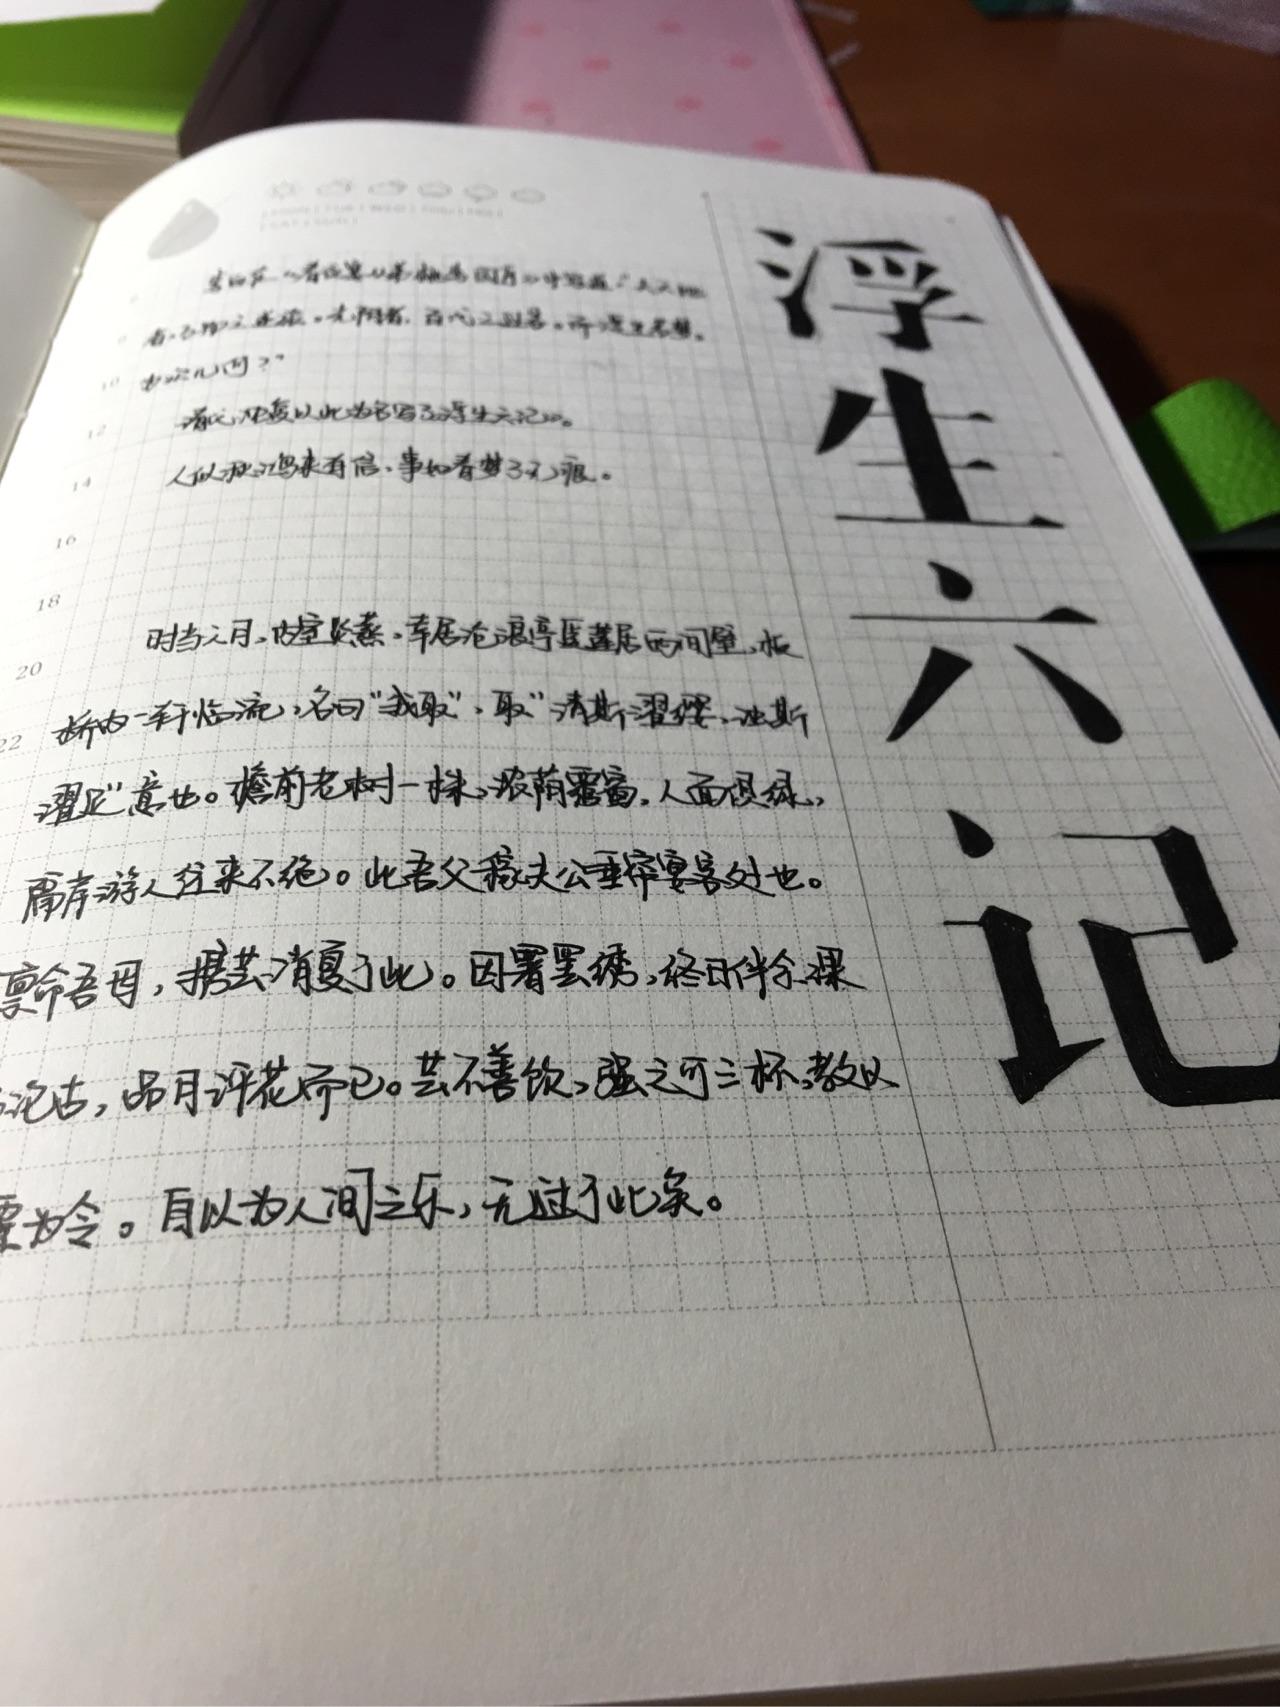 浮生六记
李白在《春夜宴从弟桃花园序》中写道："夫天地
者，万物之逆旅。光阴者，百代之过客。而浮生若梦，
为欢几何？"
清代沈复以此为名写了《浮生六记》。
人似秋鸿来有信，事如春梦了无痕。
10
12
14
16
18
20
22
时当六月，内室炎蒸，幸居沧浪亭爱莲居西间壁，板
桥内一轩临流，名曰"我取"，取"清斯濯缨，浊斯
濯足"意也。檐前老树一株，浓荫覆窗，人面俱绿，
隔岸游人往来不绝。此吾父稼夫公垂帘宴客处也。
禀命吾母，携芸消夏于此。因暑罢绣，终日伴余课
论古，品月评花而已。芸不善饮，强之可三杯，教以
覆为令。自以为人间之乐，无过于此矣。